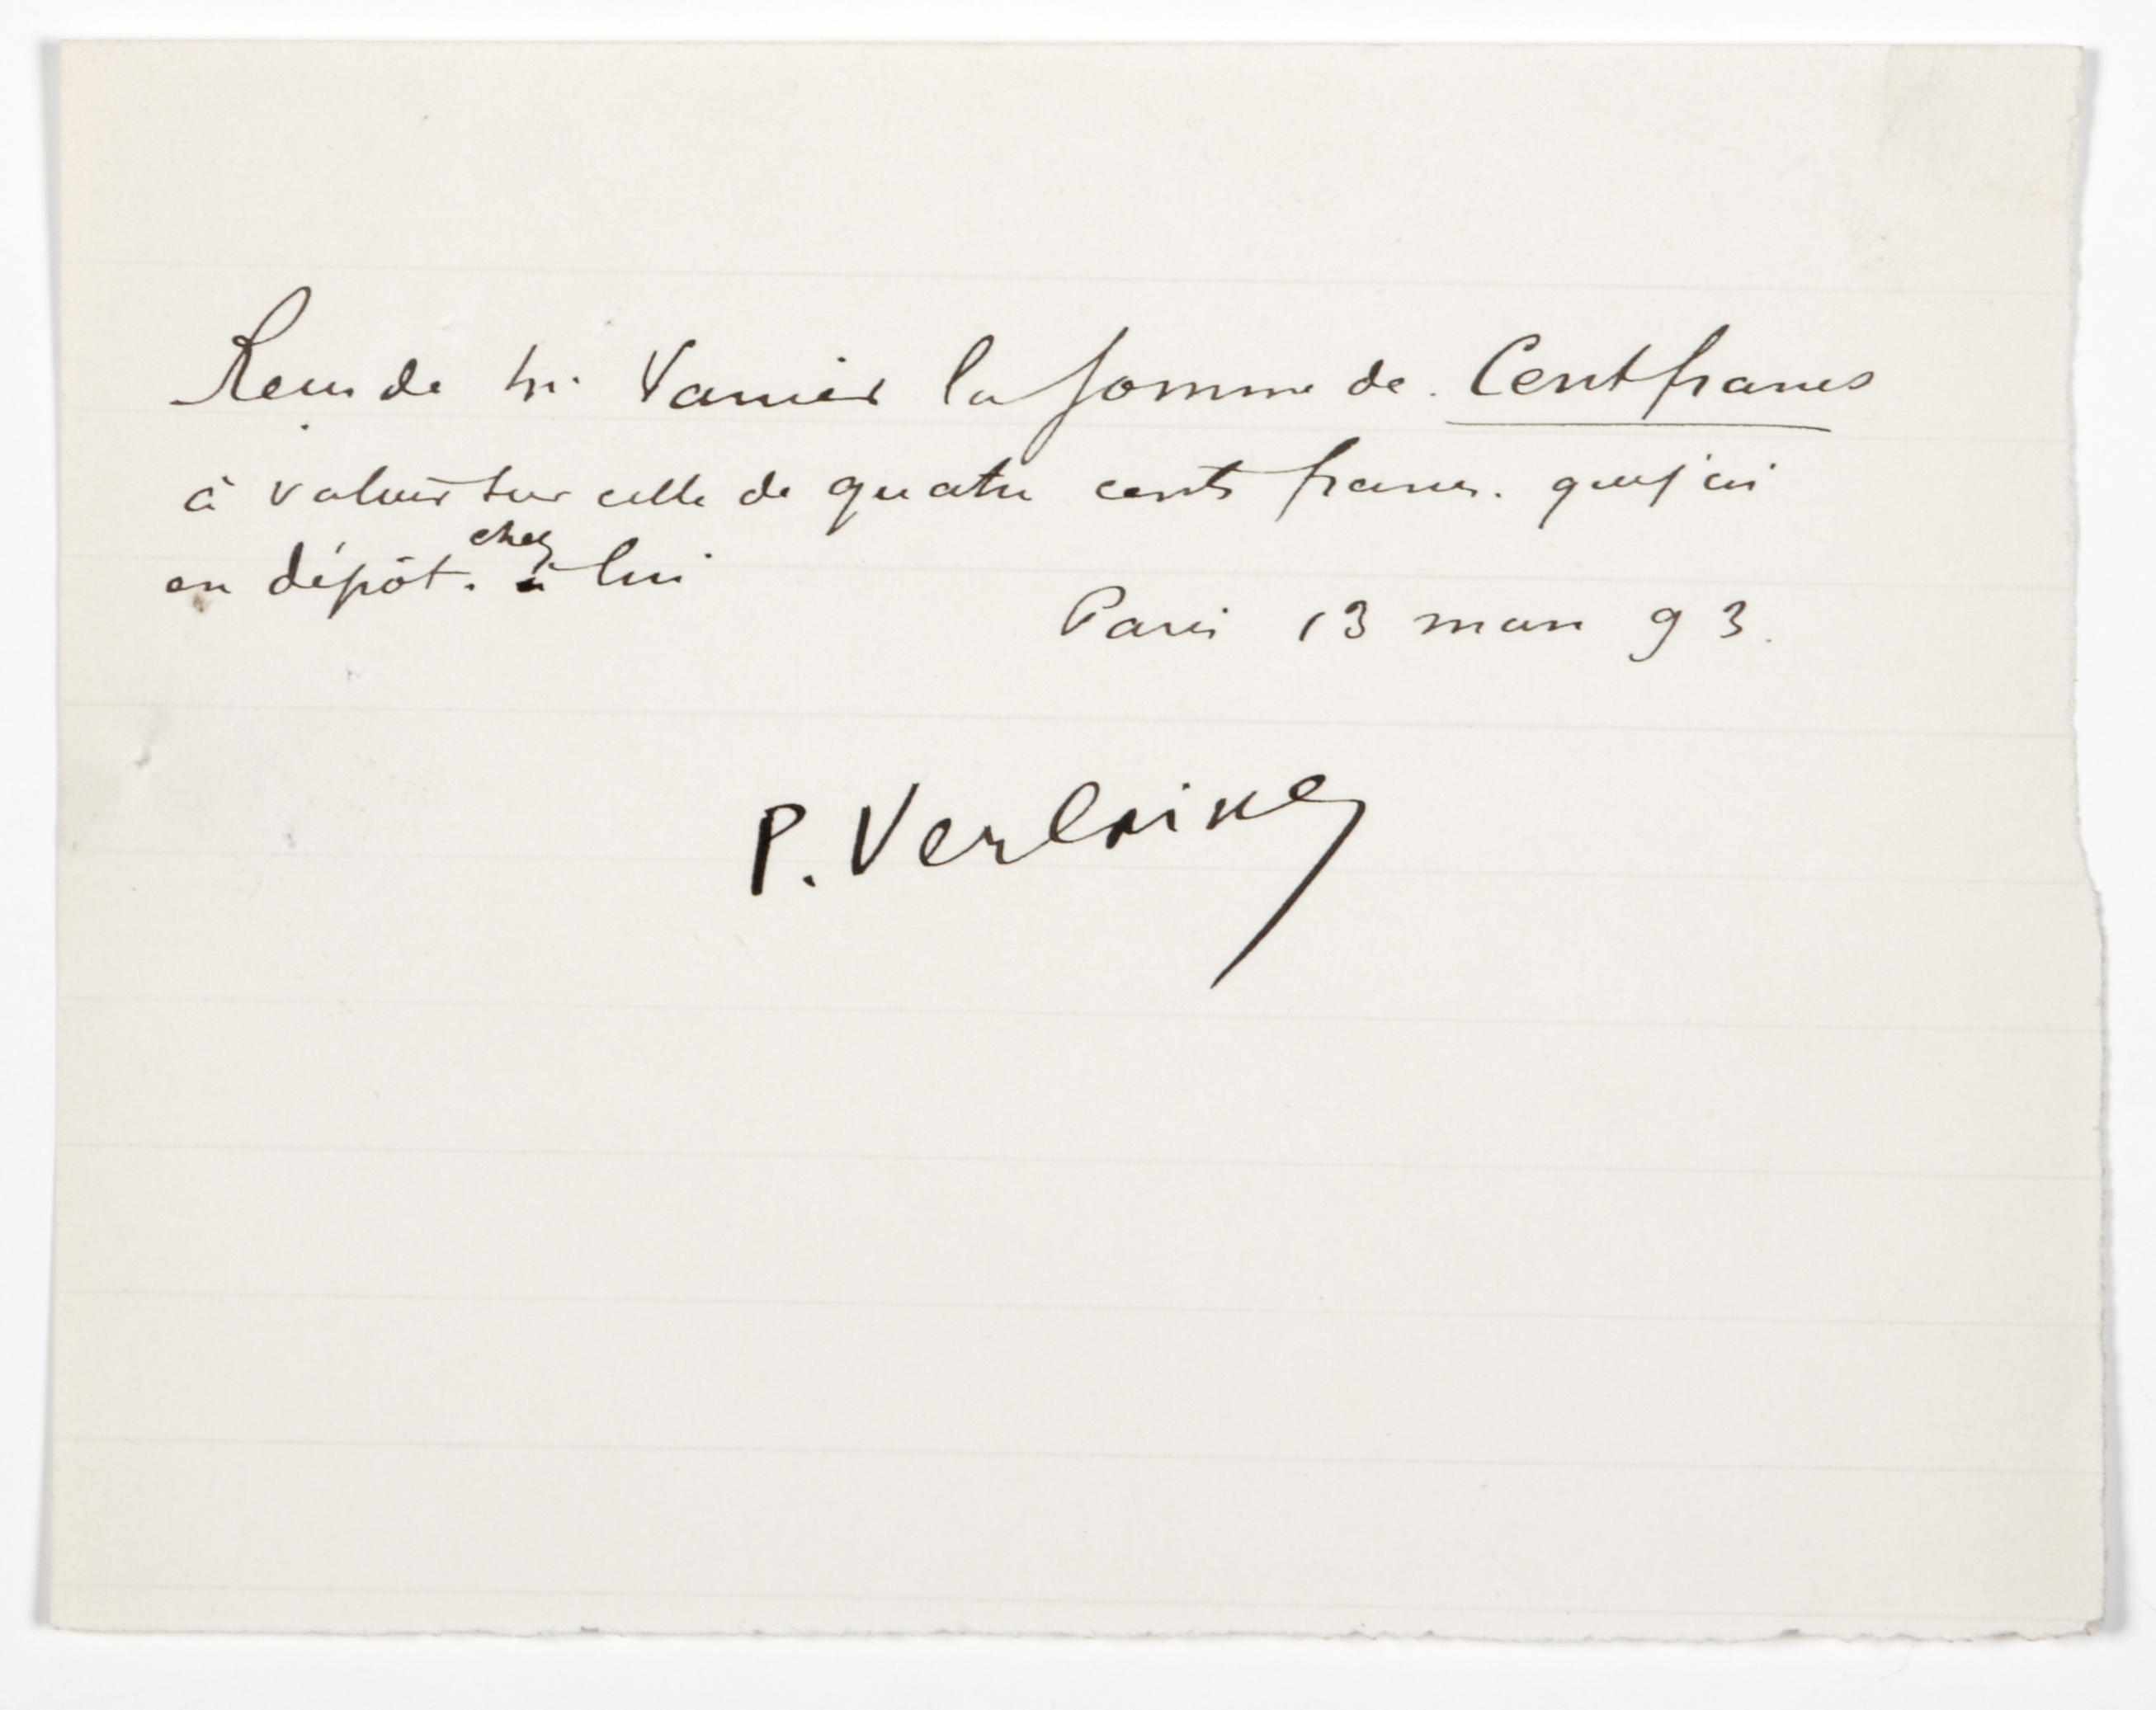 Reçu de M. Vanier la somme de Cent francs
à valoir sur celle de quatre cents francs. que j'ai
en dépôt. chez à lui
Paris 13 mars 93.
P. Verlaine